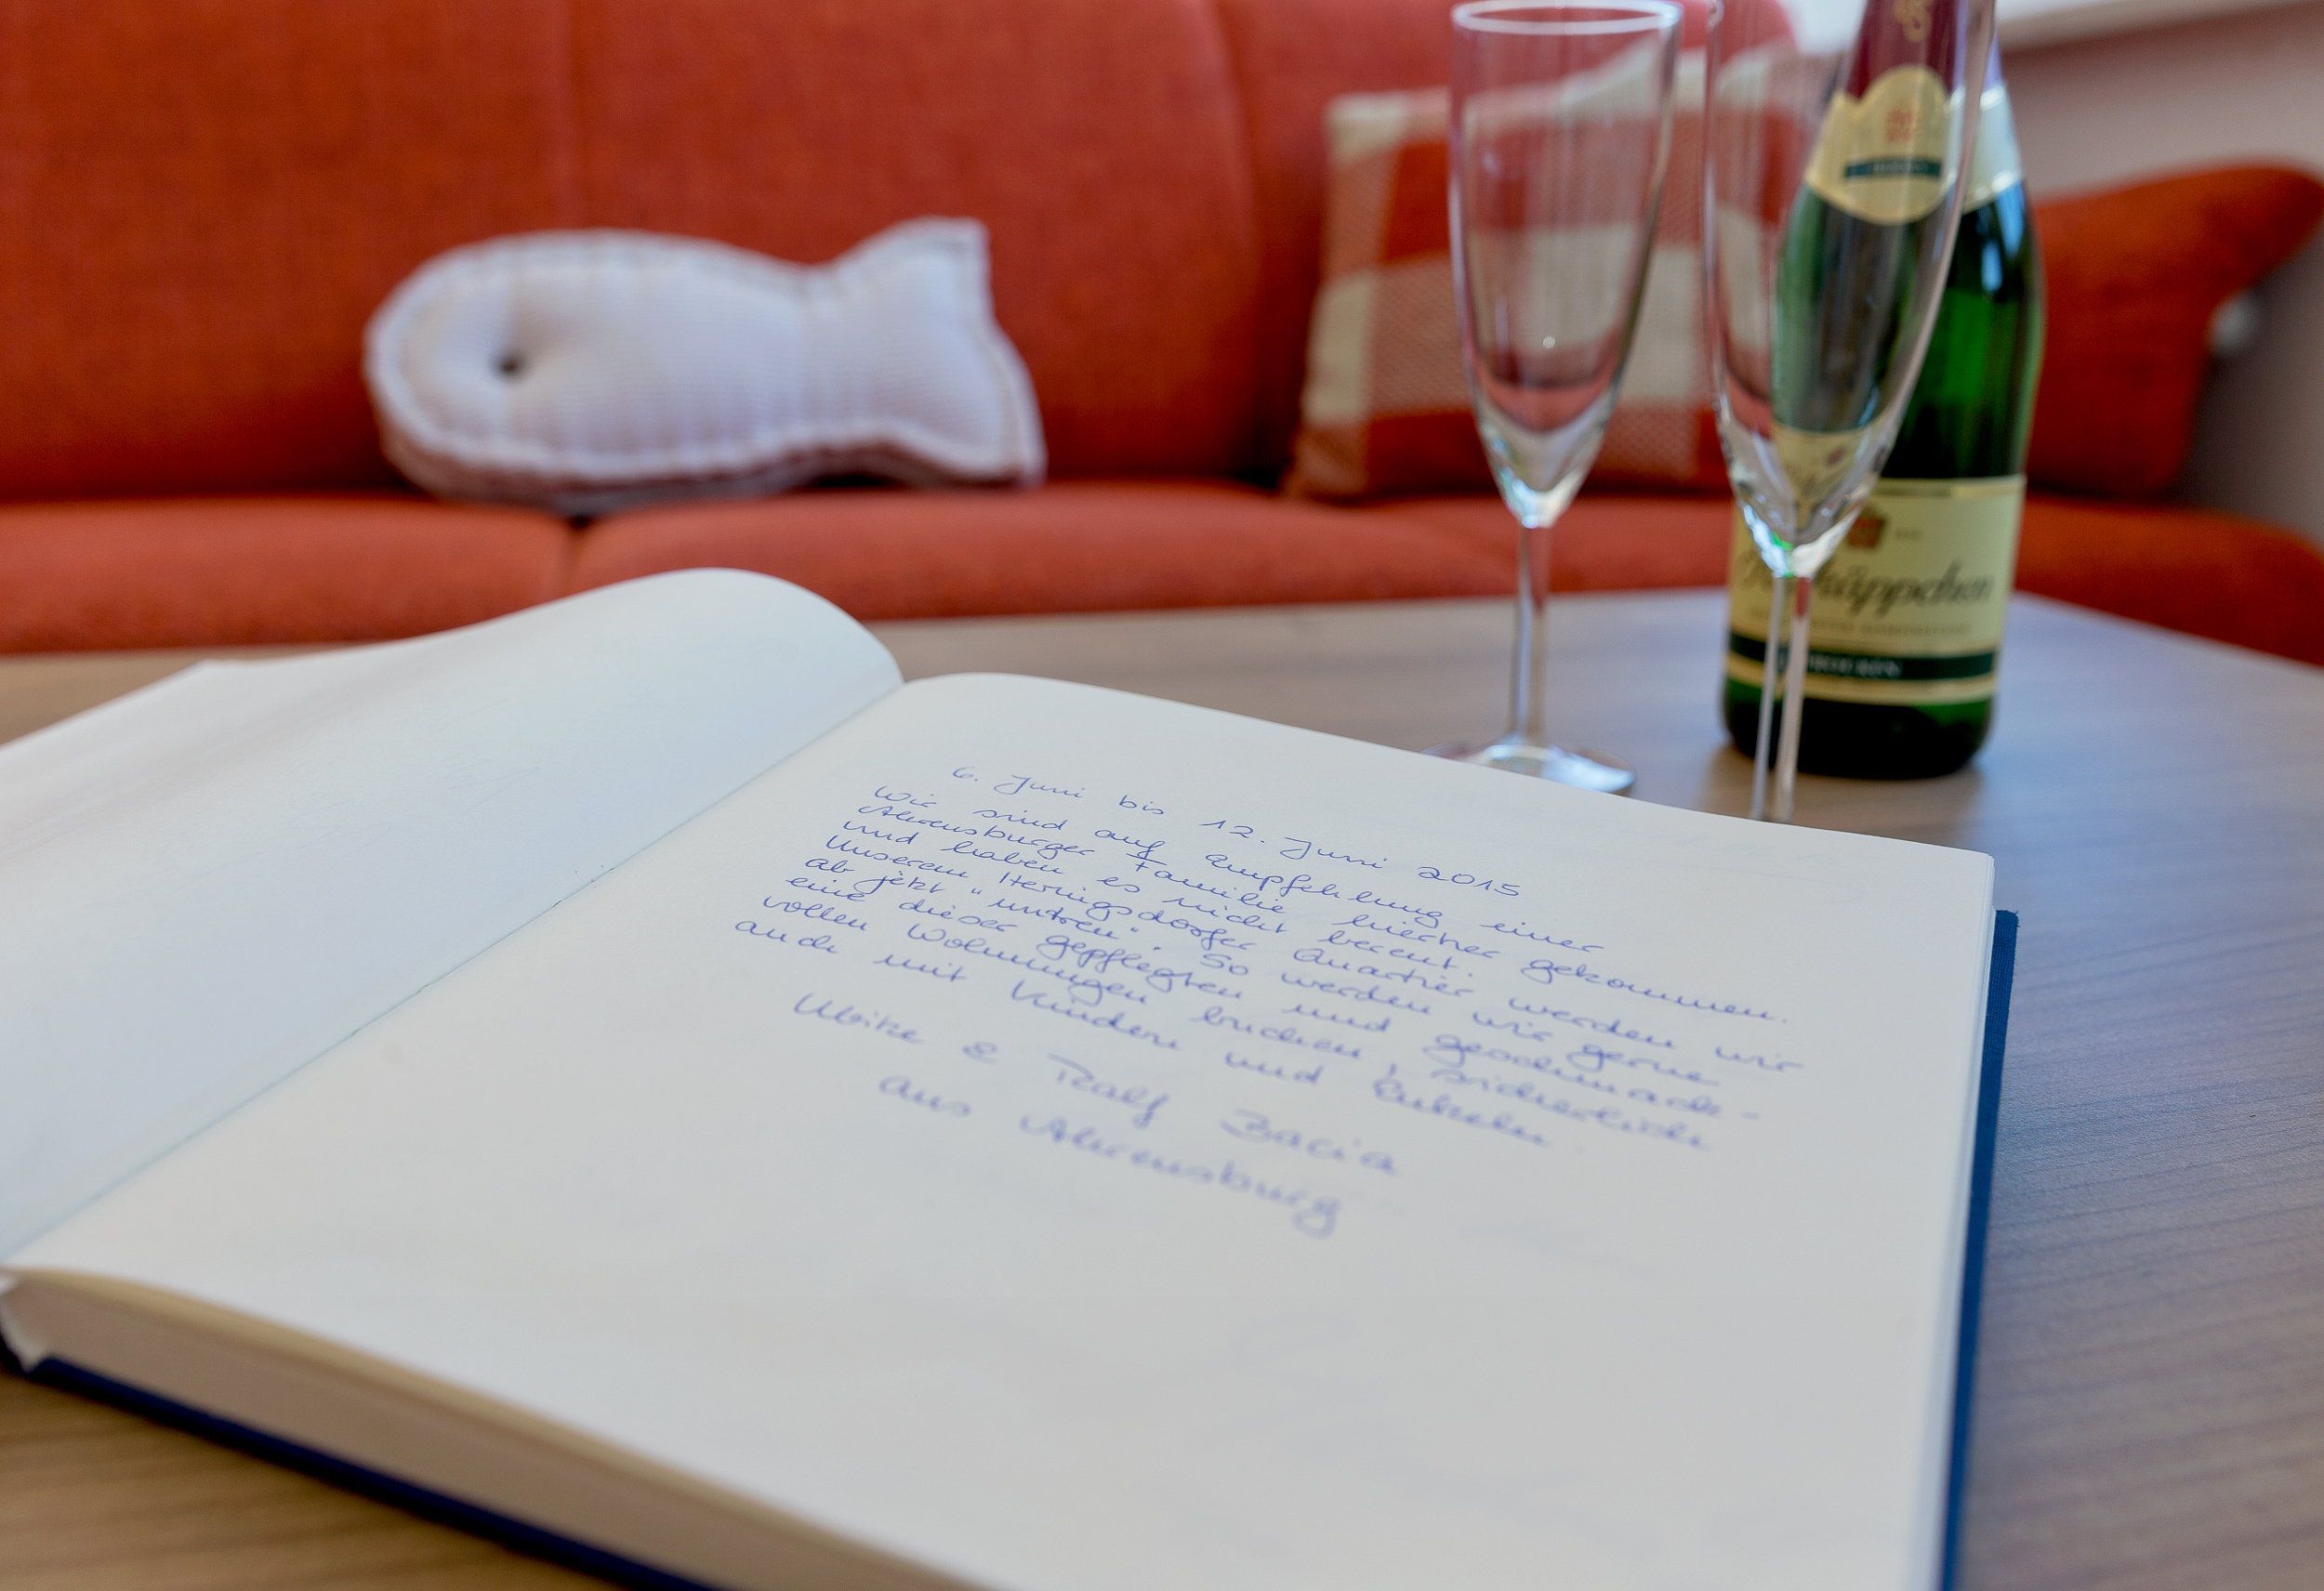 6. Juni bis 12. Juni 2015
Wir sind auf Empfehlung einer
Ahrensburger Familie hierher gekommen.
und haben es nicht bereut.
Unserem Heringsdorfer Quartier werden wir
ab jetzt „untreu“. So werden wir gerne
eine dieser gepflegten und geschmack-
vollen Wohnungen buchen, sicherlich
auch mit Kindern und Enkeln
Ulrike & Ralf Bacia
aus Ahrensburg
Rotkäppchen